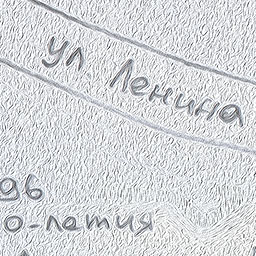 ул Ленина
дь
о-летия